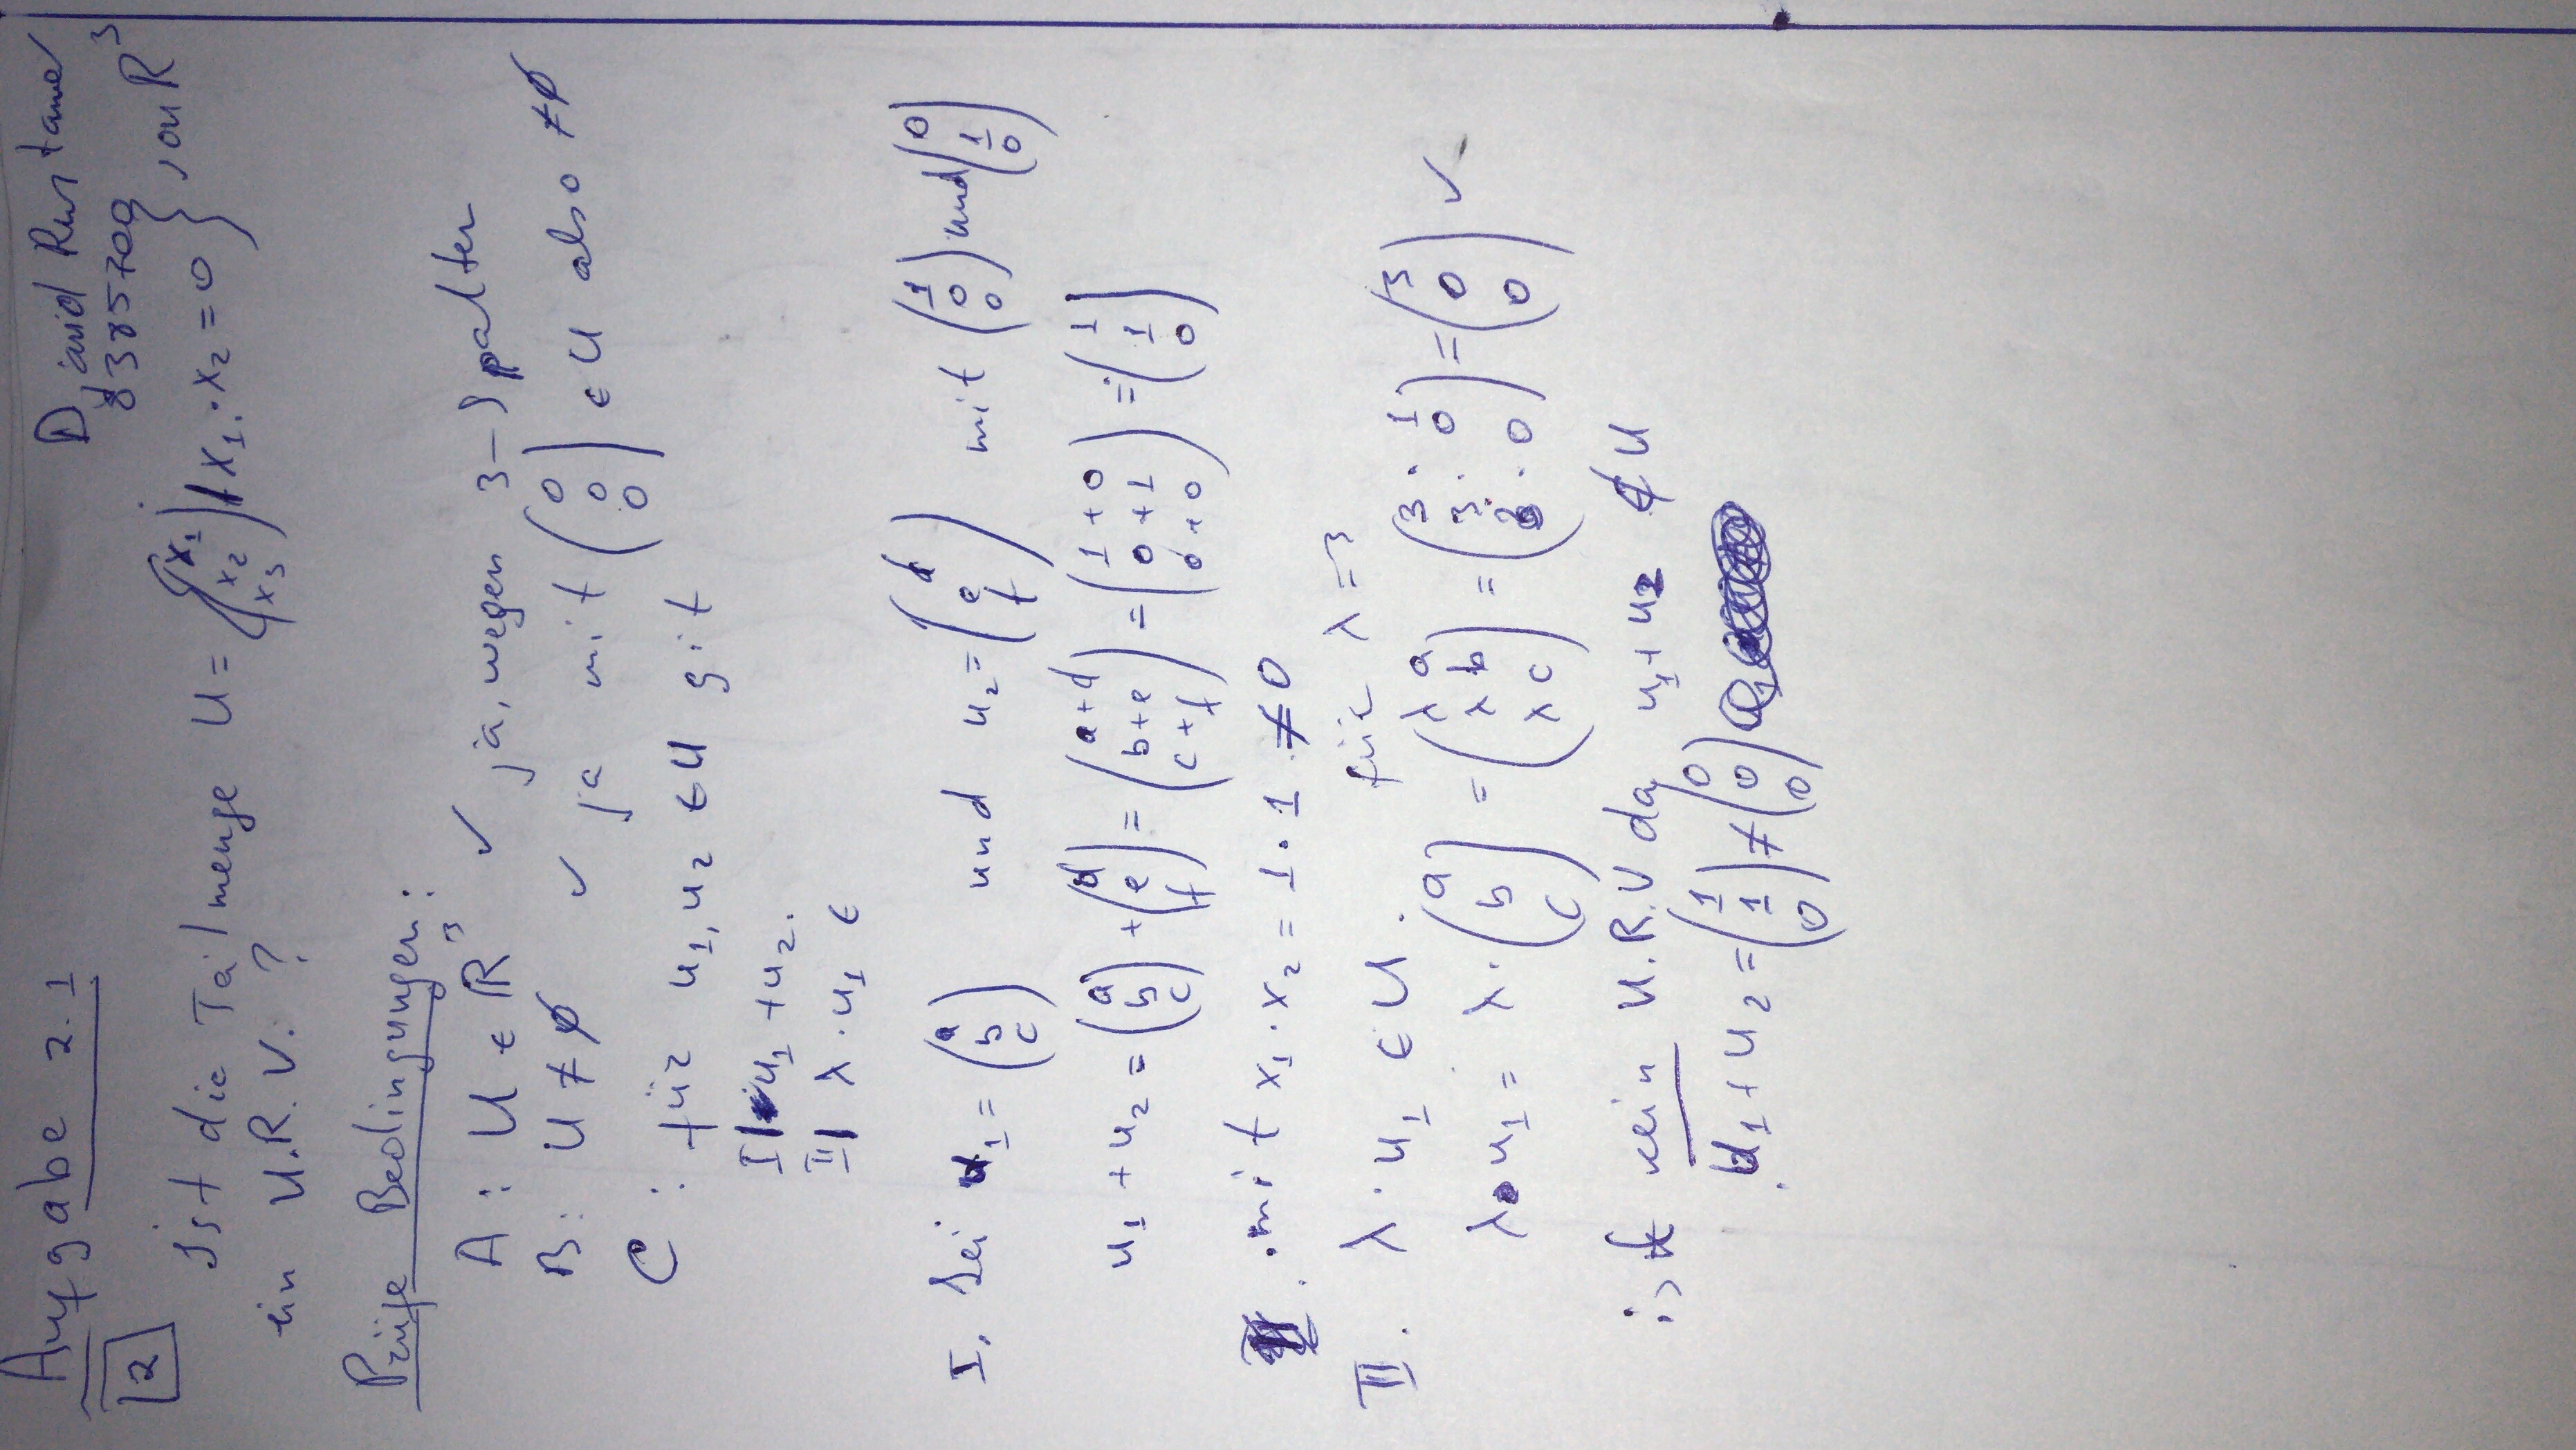 Aufgabe 2.1
Djavid Rustamov
8385700
2
Ist die Teilmenge U = { (x₁ x₂ x₃) | x₁ · x₂ = 0 } von R³
ein U.R.V. ?
Prüfe Bedingungen:
A : U ∈ ℝ³ ✓ ja, wegen 3-Spalten
B: U ≠ ∅ ✓ ja mit (0 0 0) ∈ U also ≠ ∅
C : für u₁, u₂ ∈ U git
I| u₁ + u₂.
II| λ · u₁ ∈
I. Sei u₁ = (a b c) und u₂ = (d e f) mit (1 0 0) und (0 1 0)
u₁ + u₂ = (a b c) + (d e f) = (a+d b+e c+f) = (1+0 0+1 0+0) = (1 1 0)
mit x₁ · x₂ = 1 · 1 ≠ 0
II. λ · u₁ ∈ U. für λ = 3
λ · u₁ = λ · (a b c) = (λa λb λc) = (3·1 3·0 3·0) = (3 0 0) ✓
ist kein U.R.V da u₁ + u₂ ∉ U
u₁ + u₂ = (1 1 0) ≠ (0 0 0)